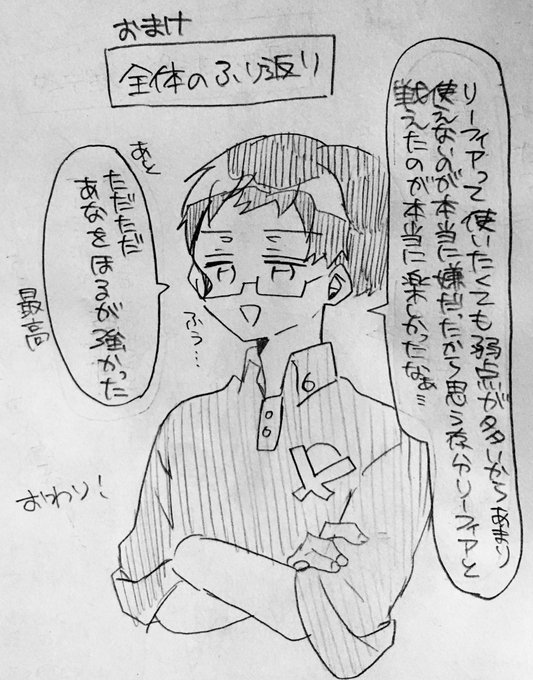 おまけ
全体のふり返り
リーフィアって使いたくても弱点が多いからあまり
使えないのが本当に嫌だったから思う存分リーフィアと
戦えたのが本当に楽しかったなぁ…
あと
ただただ
あなをほるが強かった
最高
ふぅ…
6
おわり!